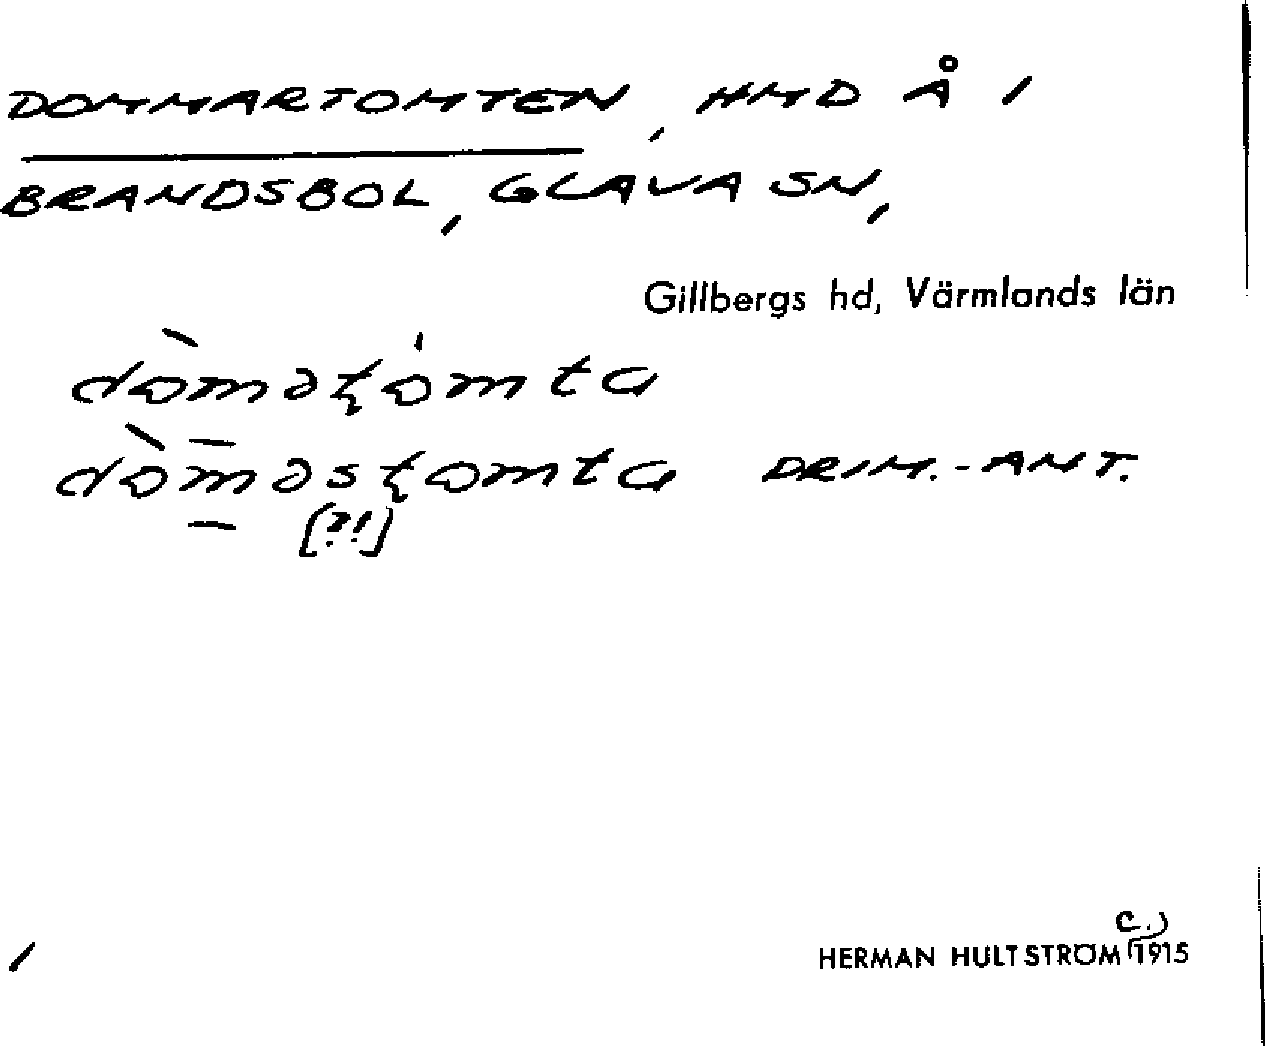 DOMMARTOMTEN, HMD Å 1
BRANDSBOL, GLAVA SN,
Gillbergs hd, Värmlands län
dòmət̨ómta
dòm̱̄əst̨omta PRIM.-ANT.
[?!]
HERMAN HULTSTRÖM (C.) 1915
/